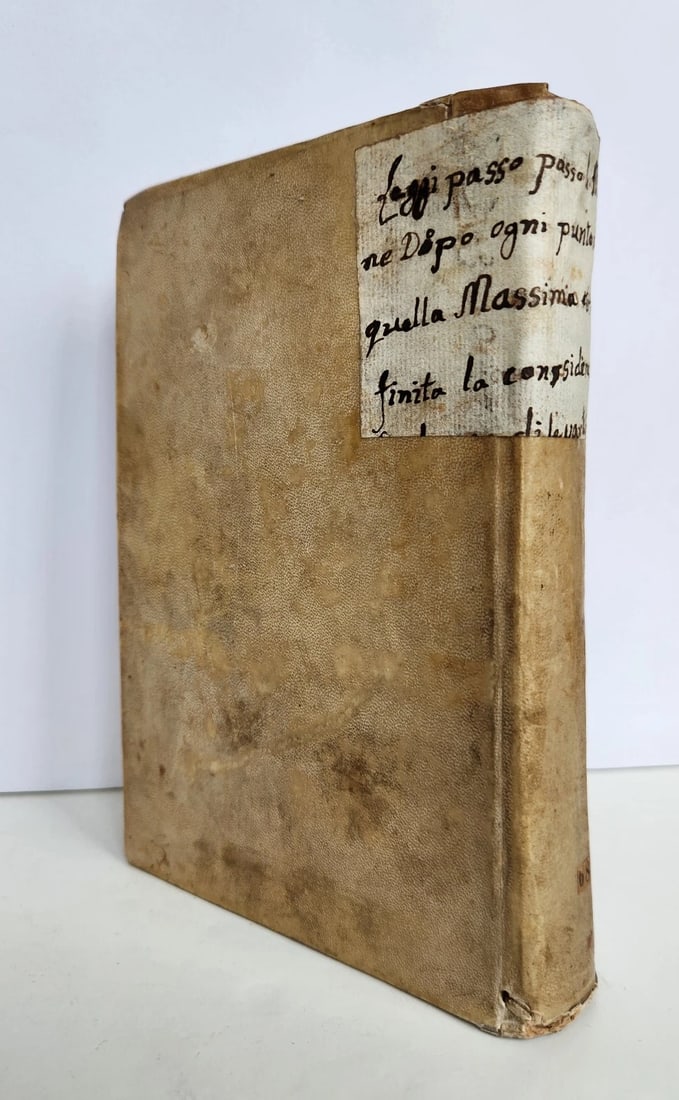 Leggi passo passo
ne Dopo ogni punto
quella Massima
finita la consside
di levar